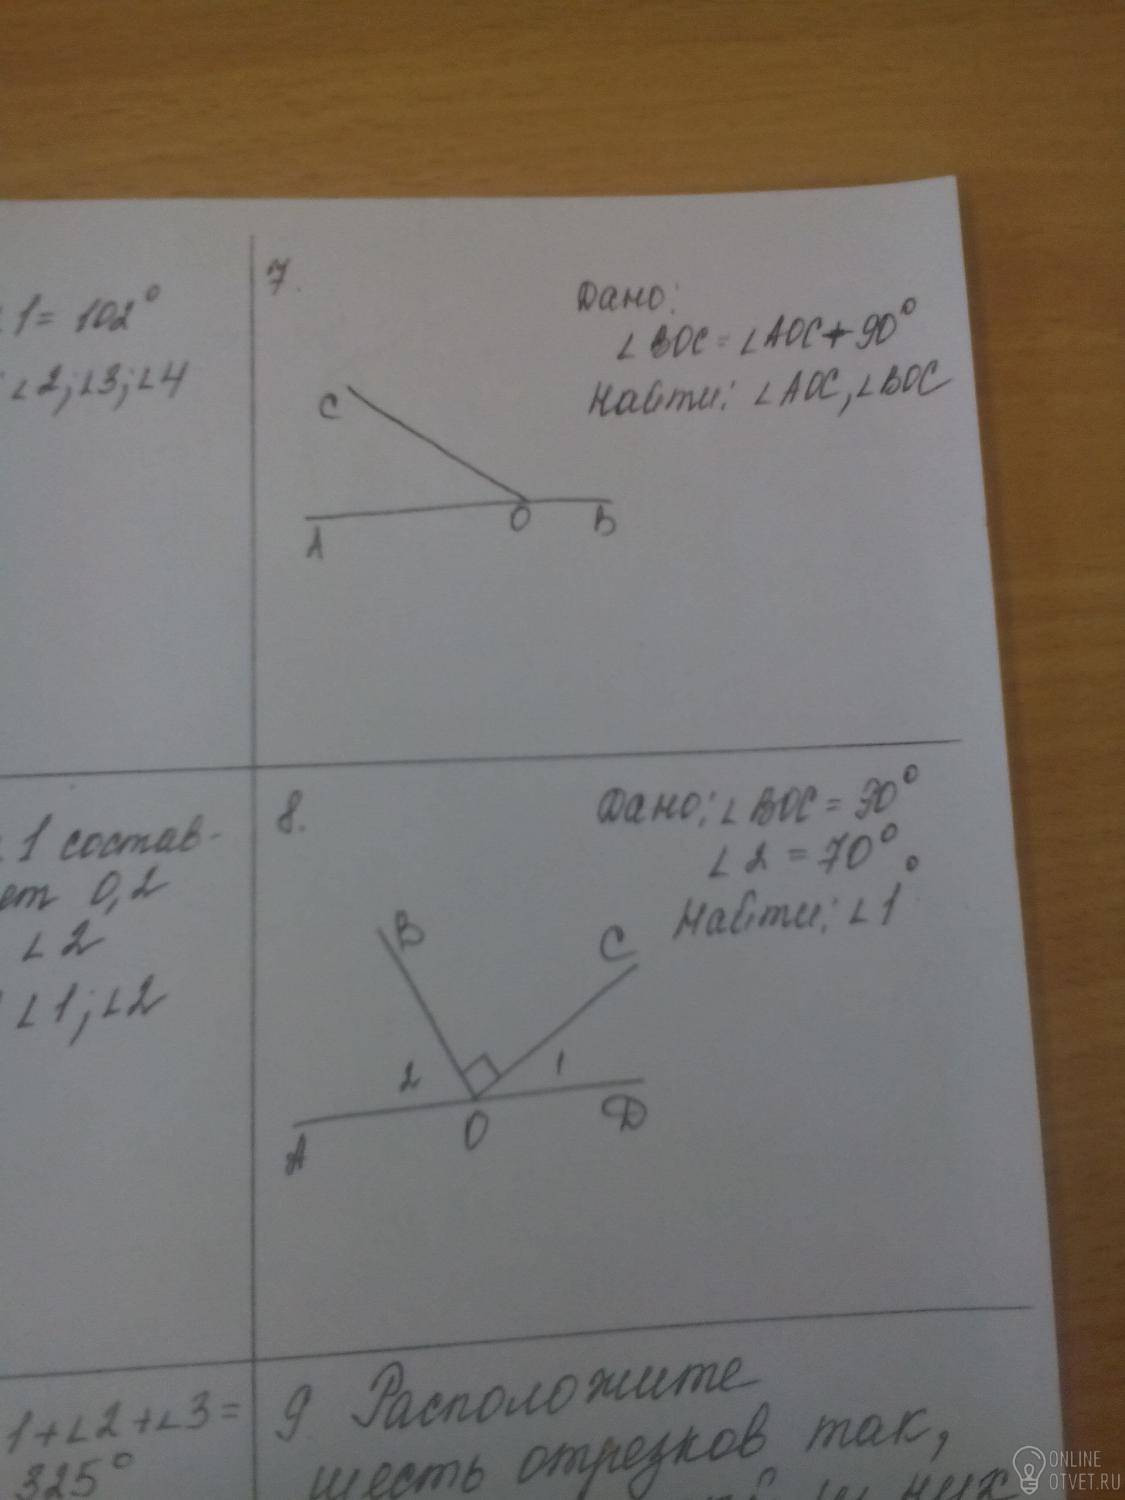 ∠1 = 102°
∠2; ∠3; ∠4
7.
Дано:
∠BOC = ∠AOC + 90°
Найти: ∠AOC, ∠BOC
C
A
O
B
∠1 состав-
ет 0,2
∠2
∠1; ∠2
8.
Дано: ∠BOC = 90°
∠2 = 70°.
Найти: ∠1
B
C
2
1
A
O
D
1+∠2+∠3=
325°
9 Расположите
шесть отрезков так,
них
ONLINE
OTVET.RU